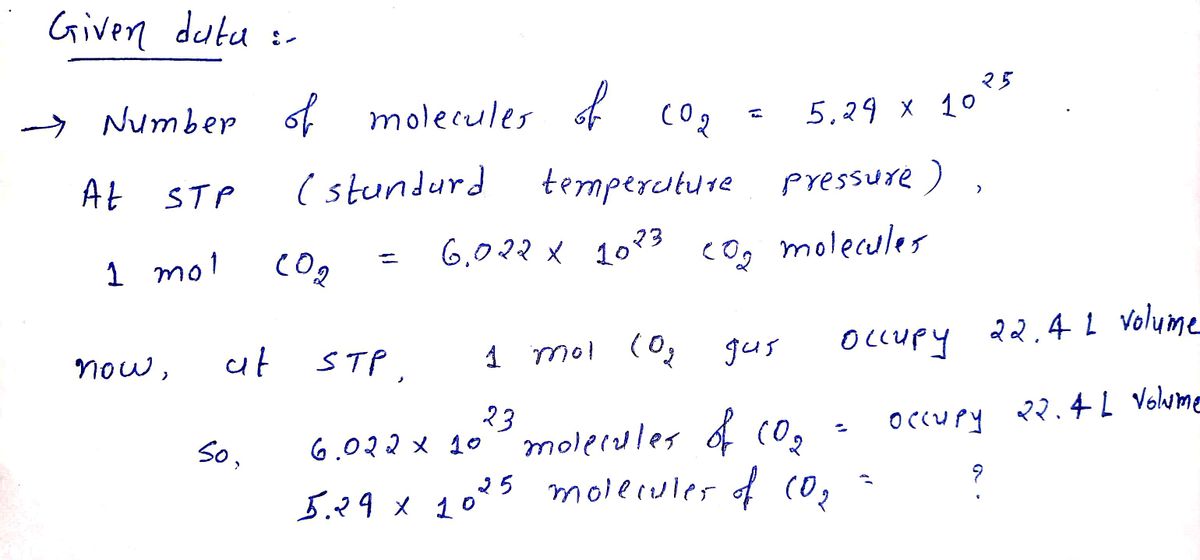 Given data :-
→ Number of molecules of CO₂ = 5.29 × 10²⁵ .
At STP (standard temperature pressure),
1 mol CO₂ = 6.022 × 10²³ CO₂ molecules
now, at STP, 1 mol CO₂ gas occupy 22.4 L volume
So, 6.022 × 10²³ molecules of CO₂ = occupy 22.4 L Volume
5.29 × 10²⁵ molecules of CO₂ = ?